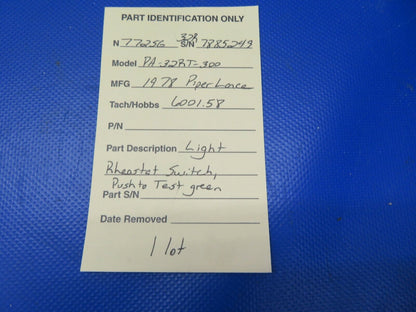 PART IDENTIFICATION ONLY
32R
N 7725G S/N 7885249
Model PA-32RT-300
MFG 1978 Piper Lance
Tach/Hobbs 6001.58
P/N
Part Description Light
Rheostat Switch,
Push to Test green
Part S/N
Date Removed
1 lot